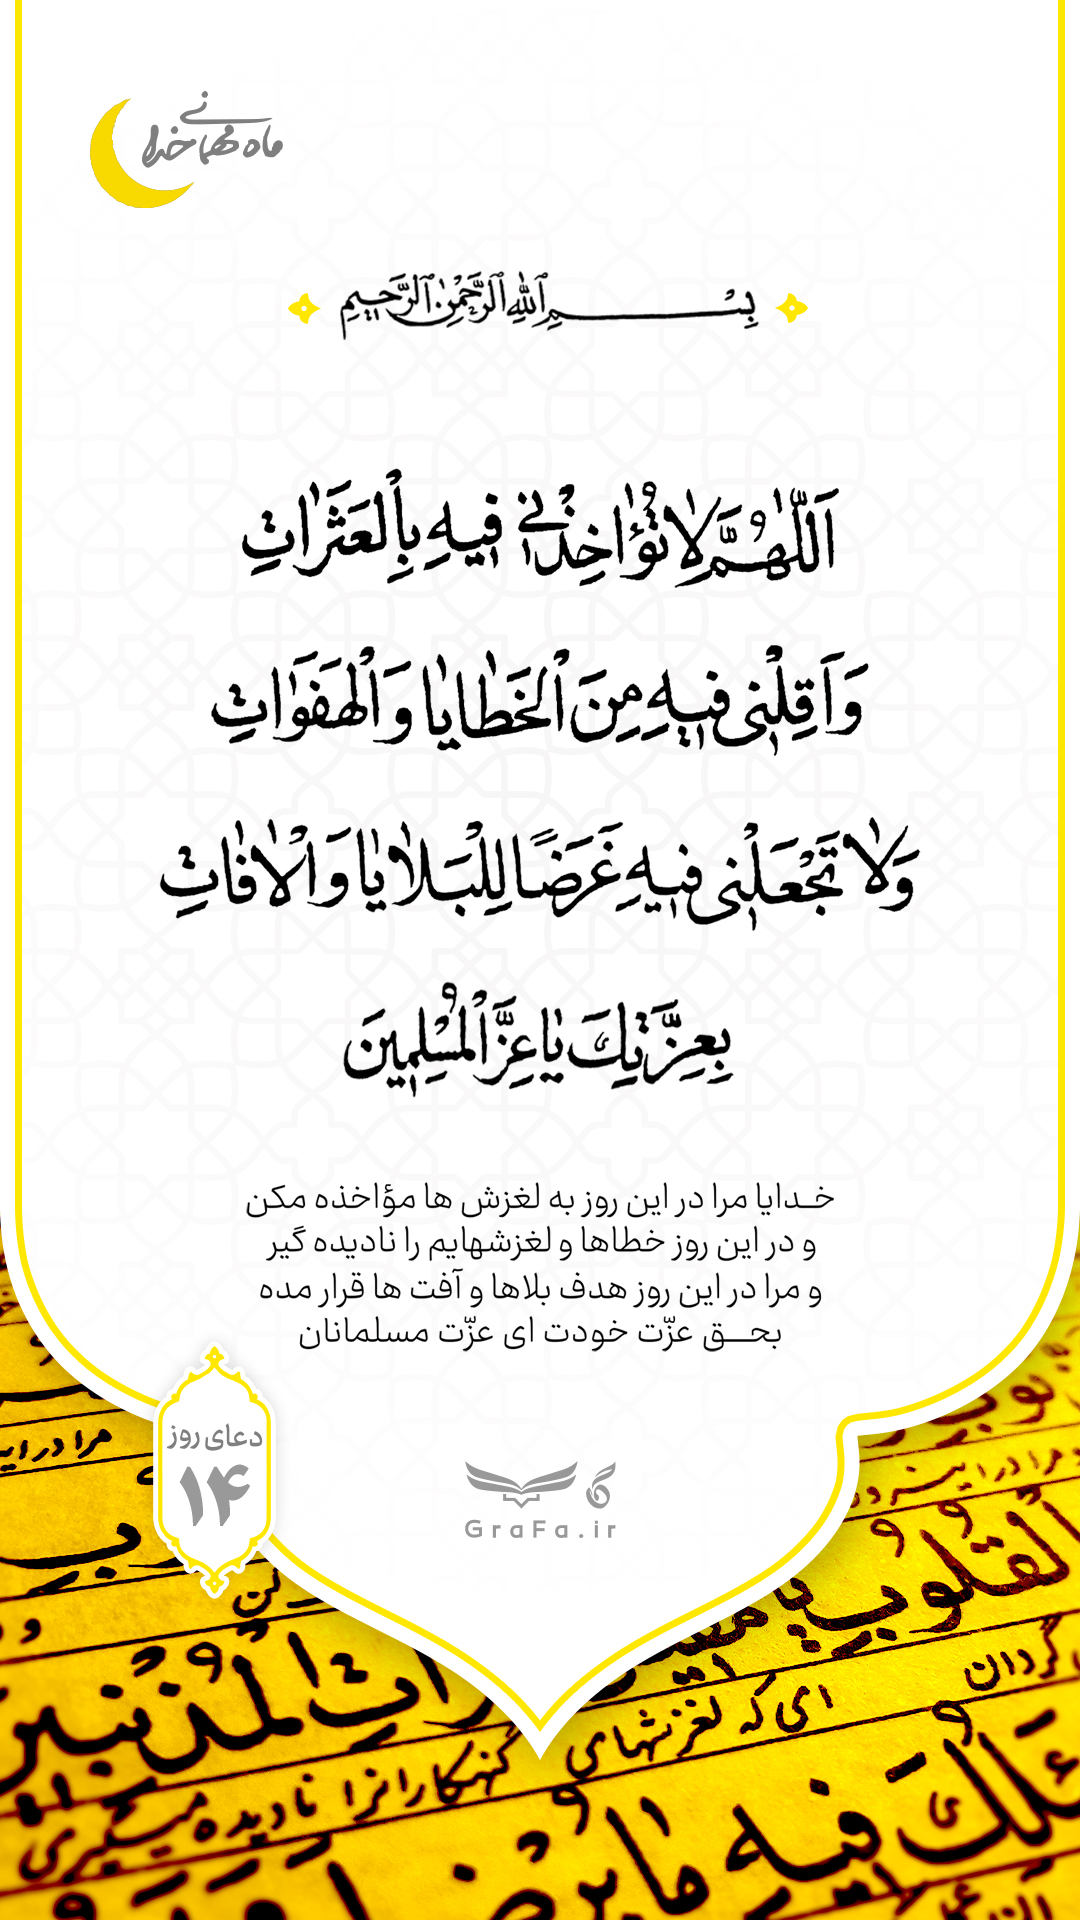 ماه مهمانی خدا
بِسْمِ ٱللّٰهِ ٱلرَّحْمٰنِ ٱلرَّحیمِ
اَللّٰهُمَّ لٰا تُؤٰاخِذْنی فیهِ بِالْعَثَرٰاتِ
وَ اَقِلْنی فیهِ مِنَ الْخَطٰایٰا وَ الْهَفَوٰاتِ
وَ لٰا تَجْعَلْنی فیهِ غَرَضًا لِلْبَلٰایٰا وَ الْاٰفٰاتِ
بِعِزَّتِكَ یٰا عِزَّ الْمُسْلِمینَ
خـدایا مرا در این روز به لغزش ها مؤاخذه مکن
و در این روز خطاها و لغزشهایم را نادیده گیر
و مرا در این روز هدف بلاها و آفت ها قرار مده
بحــق عزّت خودت ای عزّت مسلمانان
دعای روز
۱۴
GraFa.ir
مرا در این
الْقُلُوبِ
گردان
الْمُذْنِبینَ
ای که لغزشهای گنهکارانرا نادیده میگیری
فیهِ مٰا